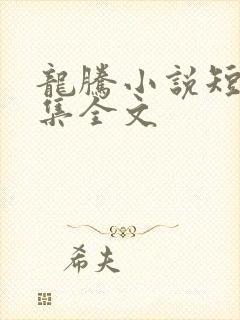 龍騰小說短
集全文
希夫